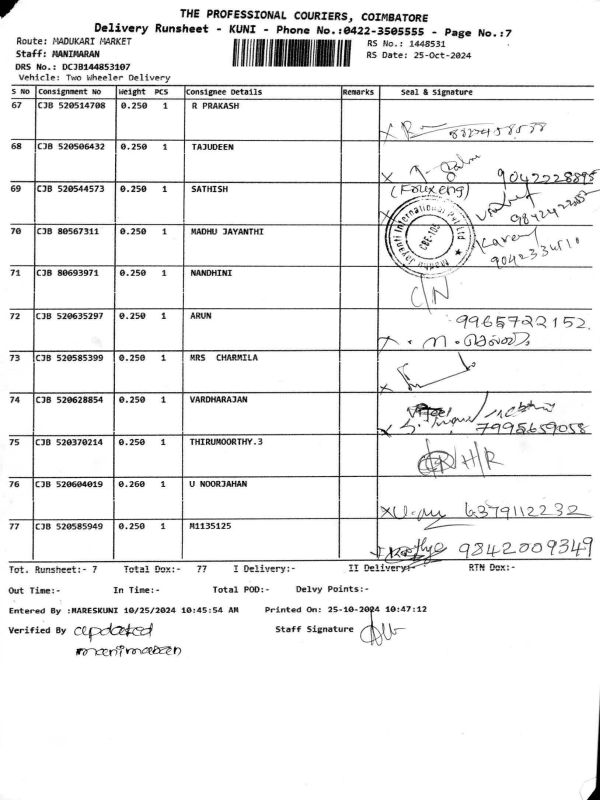 THE PROFESSIONAL COURIERS, COIMBATORE
Delivery Runsheet - KUNI - Phone No.:0422-3505555 - Page No.:7
Route: MADUKARI MARKET
RS No.: 1448531
Staff: MANIMARAN
RS Date: 25-Oct-2024
DRS No.: DCJB144853107
Vehicle: Two Wheeler Delivery
S No Consignment No Weight PCS Consignee Details Remarks Seal & Signature
67 CJB 520514708 0.250 1 R PRAKASH
68 CJB 520506432 0.250 1 TAJUDEEN
9042228895
69 CJB 520544573 0.250 1 SATHISH
(Fouxeng)
70 CJB 80567311 0.250 1 MADHU JAYANTHI
Madhu Jayanti International Pvt Ltd
CBE-105
Karen
9042334510
71 CJB 80693971 0.250 1 NANDHINI
C/N
72 CJB 520635297 0.250 1 ARUN
9965722152
73 CJB 520585399 0.250 1 MRS CHARMILA
74 CJB 520628854 0.250 1 VARDHARAJAN
7995659058
75 CJB 520370214 0.250 1 THIRUMOORTHY.3
H/R
76 CJB 520604019 0.260 1 U NOORJAHAN
6379112232
77 CJB 520585949 0.250 1 M1135125
9842009349
Tot. Runsheet:- 7 Total Dox:- 77 I Delivery:- II Delivery:- RTN Dox:-
Out Time:- In Time:- Total POD:- Delvy Points:-
Entered By :MARESKUNI 10/25/2024 10:45:54 AM Printed On: 25-10-2024 10:47:12
Verified By updated Staff Signature
manimaran